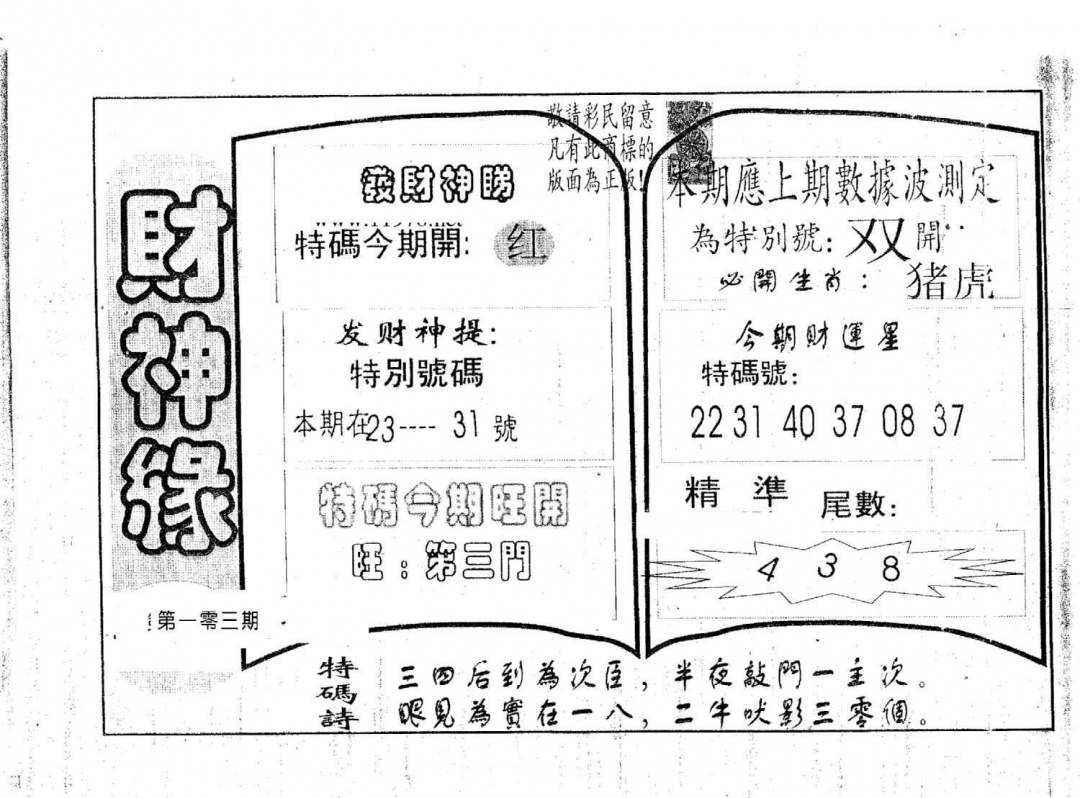 財神緣
第一零三期
敬請彩民留意
凡有此商標的
版面為正版!
發財神睇
特碼今期開: 红
发财神提:
特別號碼
本期在23----31號
特碼今期旺開
旺:第三門
本期應上期數據波測定
為特別號:双開
必開生肖:猪虎
今期財運星
特碼號:
22 31 40 37 08 37
精準 尾數:
4 3 8
特碼詩
三四后到為次臣,半夜敲門一主次。
眼見為實在一八,二牛吠影三零個。